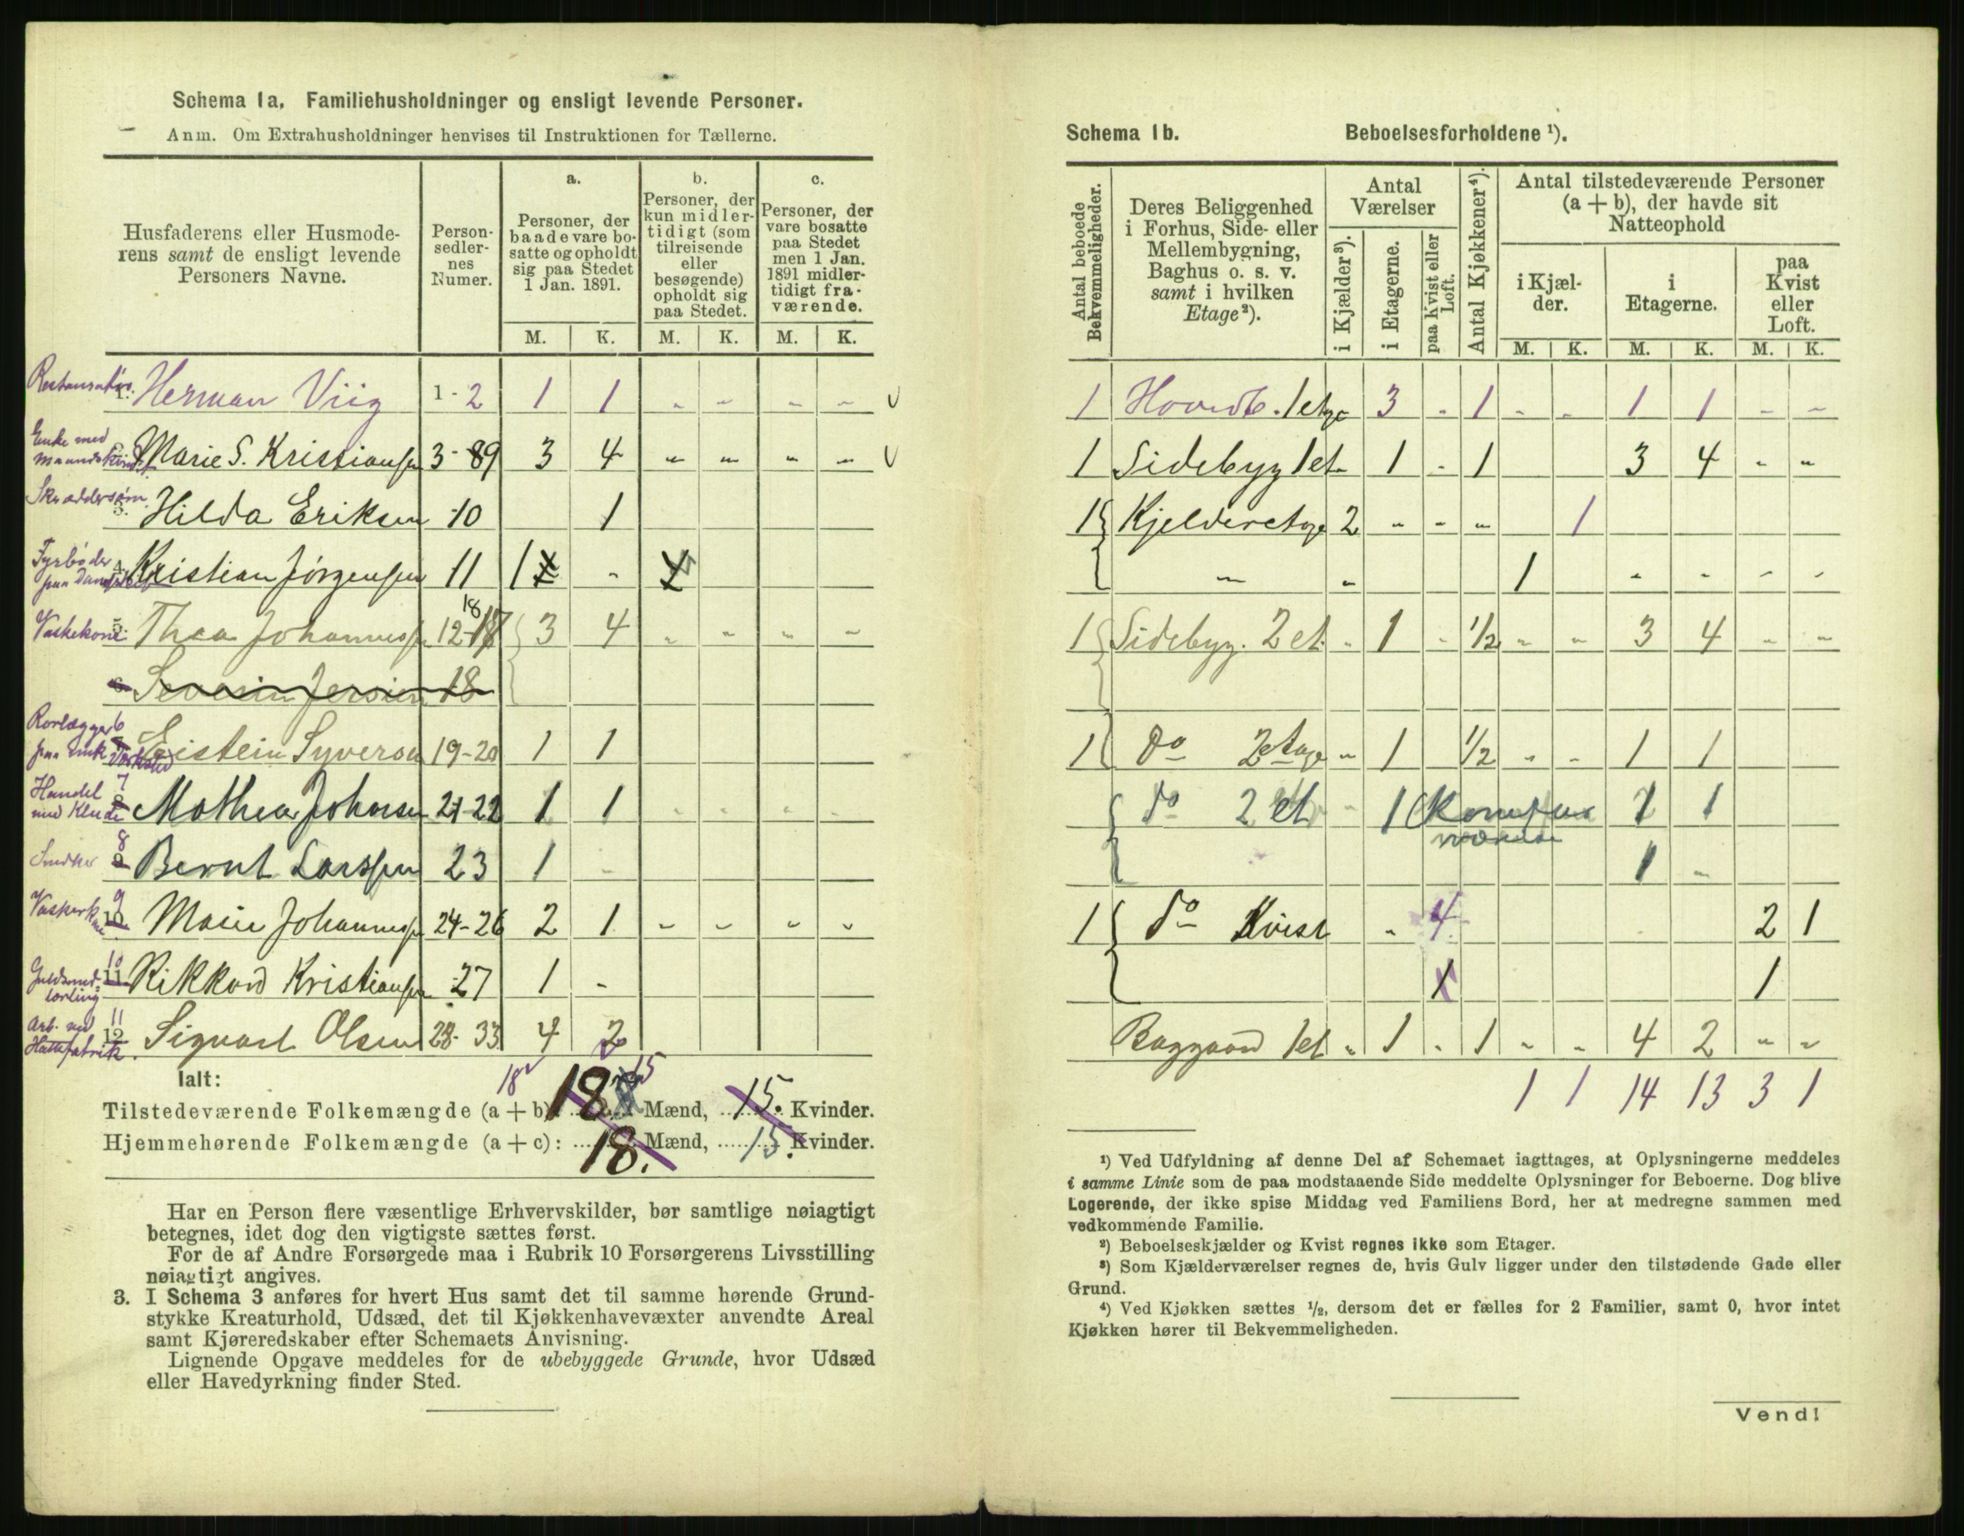 Schema 1a. Familiehusholdninger og ensligt levende Personer.
Anm. Om Extrahusholdninger henvises til Instruktionen for Tællerne.
Husfaderens eller Husmoderens samt de ensligt levende Personers Navne.
Personsedlernes Numer.
a.
Personer, der baade vare bosatte og opholdt sig paa Stedet 1 Jan. 1891.
b.
Personer, der kun midlertidigt (som tilreisende eller besøgende) opholdt sig paa Stedet.
c.
Personer, der vare bosatte paa Stedet men 1 Jan. 1891 midlertidigt fraværende.
M. K. M. K. M. K.
Restauratør. 1. Herman Viig 1-2 1 1 „ „ „ „
Enke med 2. Marie S. Kristiansen 3-9 3 4 „ „ „ „
Skræddersøm. 3. Hilda Eriksen 10 1
Fyrbøder paa 4. Kristian Jørgensen 11 1 „
Vaskekone 5. Thea Johannessen 12-18 3 4 „ „ „ „
6. 18
Rørlægger paa 6 Eistein Syversen 19-20 1 1
Handel med Klude 7 8 Mathea Johnsen 21-22 1 1 „ „ „ „
Snedker 8 9 Bernt Larssen 23 1 „
9 10 Marie Johannessen 24-26 2 1 „ „ „ „
Guldsmedlærling 10 11 Rikkard Kristiansen 27 1 „
Arb. ved Hattefabrik. 11 12 Sigvart Olsen 28-33 4 2
18 15
Ialt:
Tilstedeværende Folkemængde (a + b): 18 Mænd, 15. Kvinder.
Hjemmehørende Folkemængde (a + c): 18. Mænd, 15. Kvinder.
Har en Person flere væsentlige Erhvervskilder, bør samtlige nøiagtigt
betegnes, idet dog den vigtigste sættes først.
For de af Andre Forsørgede maa i Rubrik 10 Forsørgerens Livsstilling
nøiagtigt angives.
3. I Schema 3 anføres for hvert Hus samt det til samme hørende Grund-
stykke Kreaturhold, Udsæd, det til Kjøkkenhavevæxter anvendte Areal
samt Kjøreredskaber efter Schemaets Anvisning.
Lignende Opgave meddeles for de ubebyggede Grunde, hvor Udsæd
eller Havedyrkning finder Sted.
Schema 1b. Beboelsesforholdene ¹).
Antal beboede Bekvemmeligheder.
Deres Beliggenhed i Forhus, Side- eller Mellembygning, Baghus o. s. v. samt i hvilken Etage²).
Antal Værelser
i Kjælder³).
i Etagerne.
paa Kvist eller Loft.
Antal Kjøkkener⁴).
Antal tilstedeværende Personer (a + b), der havde sit Natteophold
i Kjælder.
i Etagerne.
paa Kvist eller Loft.
M. K. M. K. M. K.
1 Hovedb. 1 etage 3 „ 1 „ „ 1 1 „ „
1 Sidebyg 1 et 1 „ 1 3 4 „ „
1 Kjelderetage 2 „ „ „ 1
„ „ 1 „ „ „ „
1 Sidebyg. 2 et. „ 1 „ 1/2 „ „ 3 4 „ „
1 do 2 etage „ 1 1/2 „ „ 1 1
do 2 et „ 1 1 1
1 „
1 do Kvist „ 4 2 1
1 1
Baggaard 1 et „ 1 „ 1 „ „ 4 2 „ „
1 1 14 13 3 1
¹) Ved Udfyldning af denne Del af Schemaet iagttages, at Oplysningerne meddeles
i samme Linie som de paa modstaaende Side meddelte Oplysninger for Beboerne. Dog blive
Logerende, der ikke spise Middag ved Familiens Bord, her at medregne sammen med
vedkommende Familie.
²) Beboelseskjælder og Kvist regnes ikke som Etager.
³) Som Kjælderværelser regnes de, hvis Gulv ligger under den tilstødende Gade eller
Grund.
⁴) Ved Kjøkken sættes ½, dersom det er fælles for 2 Familier, samt 0, hvor intet
Kjøkken hører til Bekvemmeligheden.
Vend!